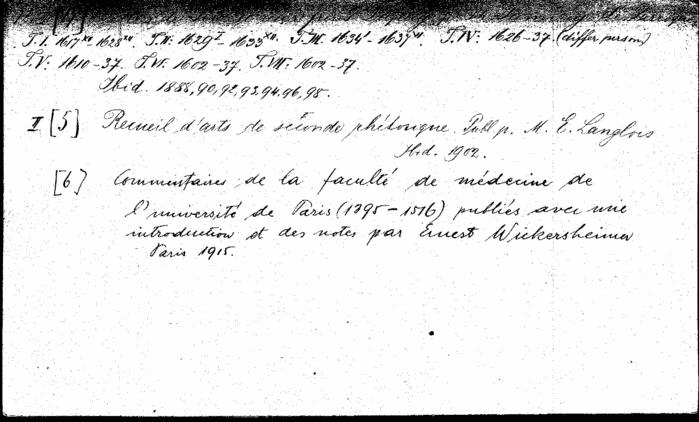 T. I. 1617 XII - 1628 XII. T. II. 1629 I - 1633 XII. T. III. 1634 I - 1637 XII. T. IV: 1626-37 (differ. person)
T. V: 1610-37. T. VI: 1602-37. T. VII: 1602-37.
Ibid. 1888, 90, 92, 93, 94, 96, 98.
II [5] Recueil d'arts de seconde rhétorique. Publ p. M. E. Langlois
Ibid. 1902.
[6] Commentaires de la faculté de médecine de
l'université de Paris (1395-1516) publiés avec une
introduction et des notes par Ernest Wickersheimer
Paris 1915.